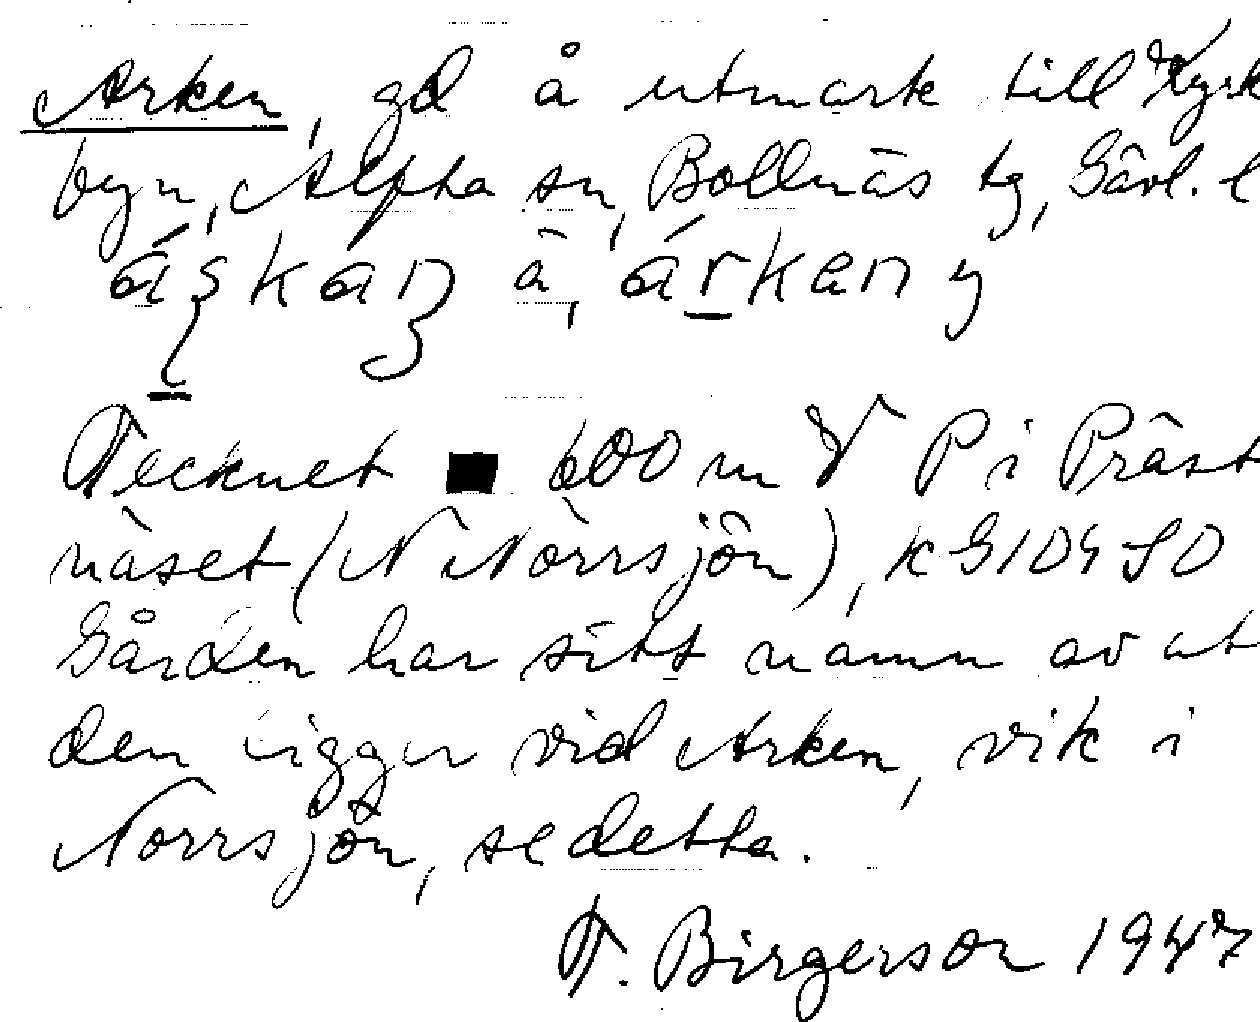 Arken, gd å utmark till Kyrk
byn, Alfta sn, Bollnäs tg, Gävl. l
Tecknet ■ 600 m V P i Präst
näset (N Norrsjön), k G 104 SO
Gården har sitt namn av at
den ligger vid Arken, vik i
Norrsjön, se detta.
T. Birgerson 1947